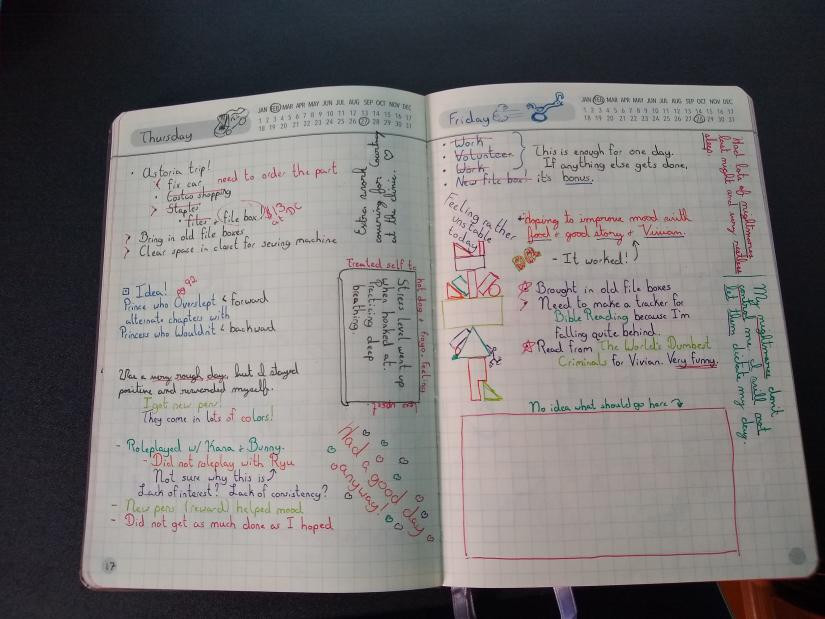 Thursday
JAN FEB MAR APR MAY JUN JUL AUG SEP OCT NOV DEC
1 2 3 4 5 6 7 8 9 10 11 12 13 14 15 16 17
18 19 20 21 22 23 24 25 26 27 28 29 30 31
• Astoria trip!
fix car, need to order the part
• Costco shopping
> Stapler
• files, file box! $13 at DC
> Bring in old file boxes
> Clear space in closet for sewing machine
Extra work
covering for Courtney
at the clinic. ♡
Idea!
Prince who Overslept & forward
alternate chapters with
Princess who Wouldn't & backward
Treated self to
hot dog + froyo. Feeling
less upset.
Stress level went up
when honked at.
Practicing deep
breathing.
Was a very rough day, but I stayed
positive and rewarded myself.
I got new pens!
They come in lots of colors!
- Roleplayed w/ Kana + Bunny.
- Did not roleplay with Ryu
Not sure why this is
Lack of interest? Lack of consistency?
- New pens (reward) helped mood
- Did not get as much done as I hoped
Had a good day
anyway!
17
Friday
JAN FEB MAR APR MAY JUN JUL AUG SEP OCT NOV DEC
1 2 3 4 5 6 7 8 9 10 11 12 13 14 15 16 17
18 19 20 21 22 23 24 25 26 27 28 29 30 31
• Work
• Volunteer
• Work
• New file box!
This is enough for one day.
If anything else gets done,
it's bonus.
Had lots of nightmares
last night and very restless
sleep.
Feeling rather
unstable
today
Hoping to improve mood with
food + good story + Vivian.
- It worked!
☆ Brought in old file boxes
> Need to make a tracker for
Bible Reading because I'm
falling quite behind.
☆ Read from The World's Dumbest
Criminals for Vivian. Very funny.
My nightmares don't
control me. I will not
let them dictate my day.
No idea what should go here